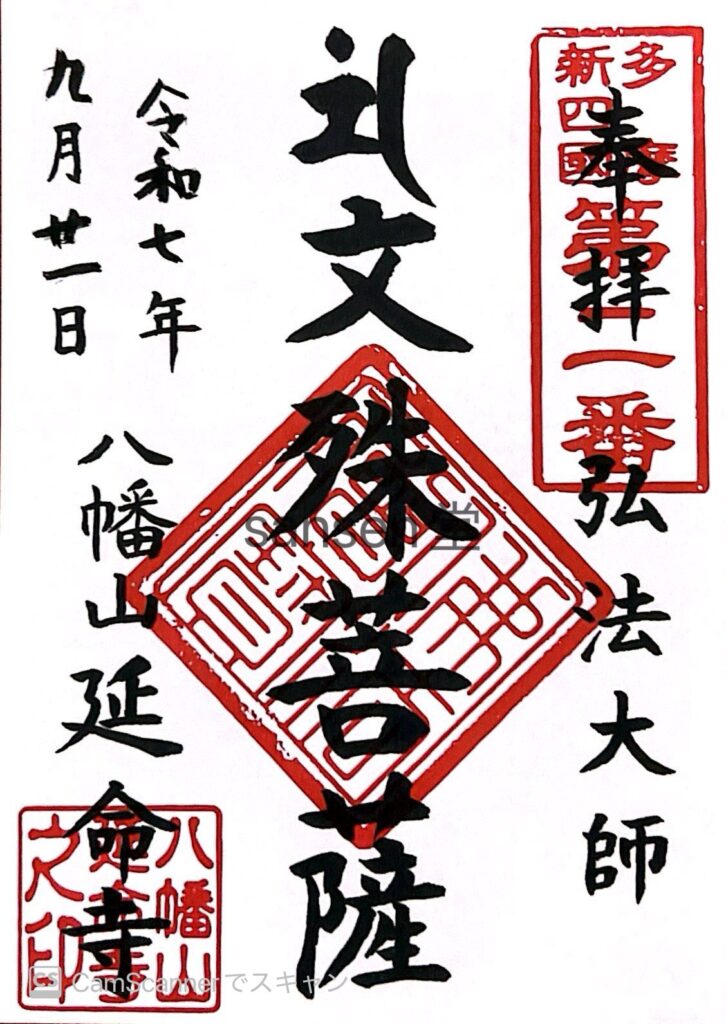 奉拝 弘法大師
多摩
新四國
第一番
文殊菩薩
令和七年
九月廿一日
八幡山延命寺
八幡山
延命寺
之印
sansen堂
CS CamScannerでスキャン